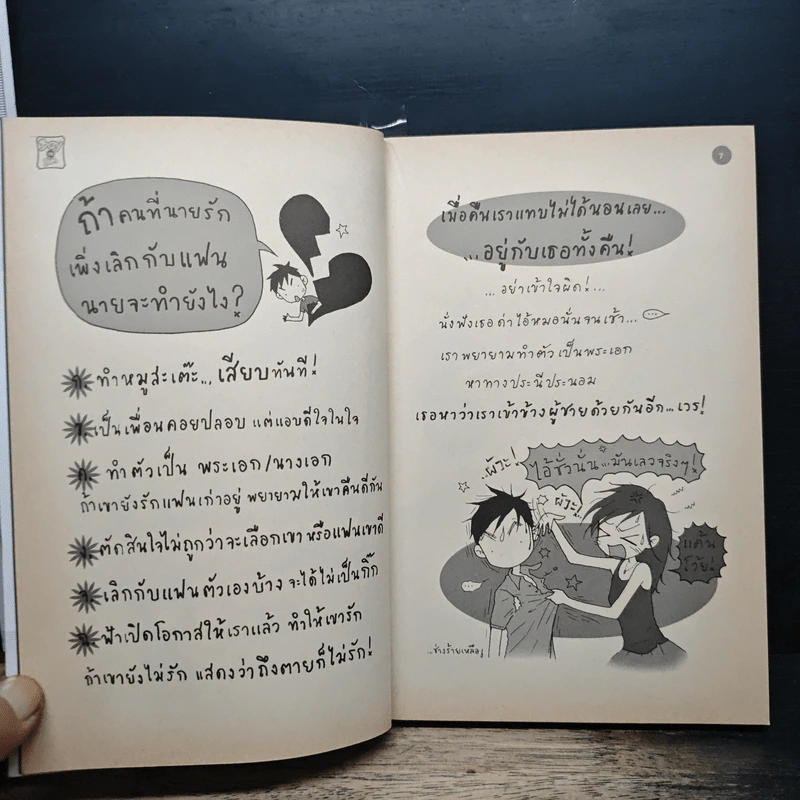 ถ้าคนที่นายรัก
เพิ่งเลิกกับแฟน
นายจะทำยังไง?
ทำหมูสะเต๊ะ... เสียบทันที!
เป็นเพื่อนคอยปลอบ แต่แอบดีใจในใจ
ทำตัวเป็น พระเอก/นางเอก
ถ้าเขายังรักแฟนเก่าอยู่ พยายามให้เขาคืนดีกัน
ตัดสินใจไม่ถูกว่าจะเลือกเขา หรือแฟนเขาดี
เลิกกับแฟนตัวเองบ้าง จะได้ไม่เป็นกิ๊ก
ฟ้าเปิดโอกาสให้เราแล้ว ทำให้เขารัก
ถ้าเขายังไม่รัก แสดงว่าถึงตายก็ไม่รัก!
7
เมื่อคืนเราแทบไม่ได้นอนเลย...
...อยู่กับเธอทั้งคืน!
...อย่าเข้าใจผิด!...
นั่งฟังเธอด่าไอ้หมอนั่นจนเช้า...
เราพยายามทำตัวเป็นพระเอก
หาทางประนีประนอม
เธอหาว่าเราเข้าข้างผู้ชายด้วยกันอีก...เวร!
..ผัวะ!
ไอ้ชั่วนั่น...มันเลวจริงๆ!
ผัวะ!..
แค้น
โว้ย!
...ช่างร้ายเหลือ!